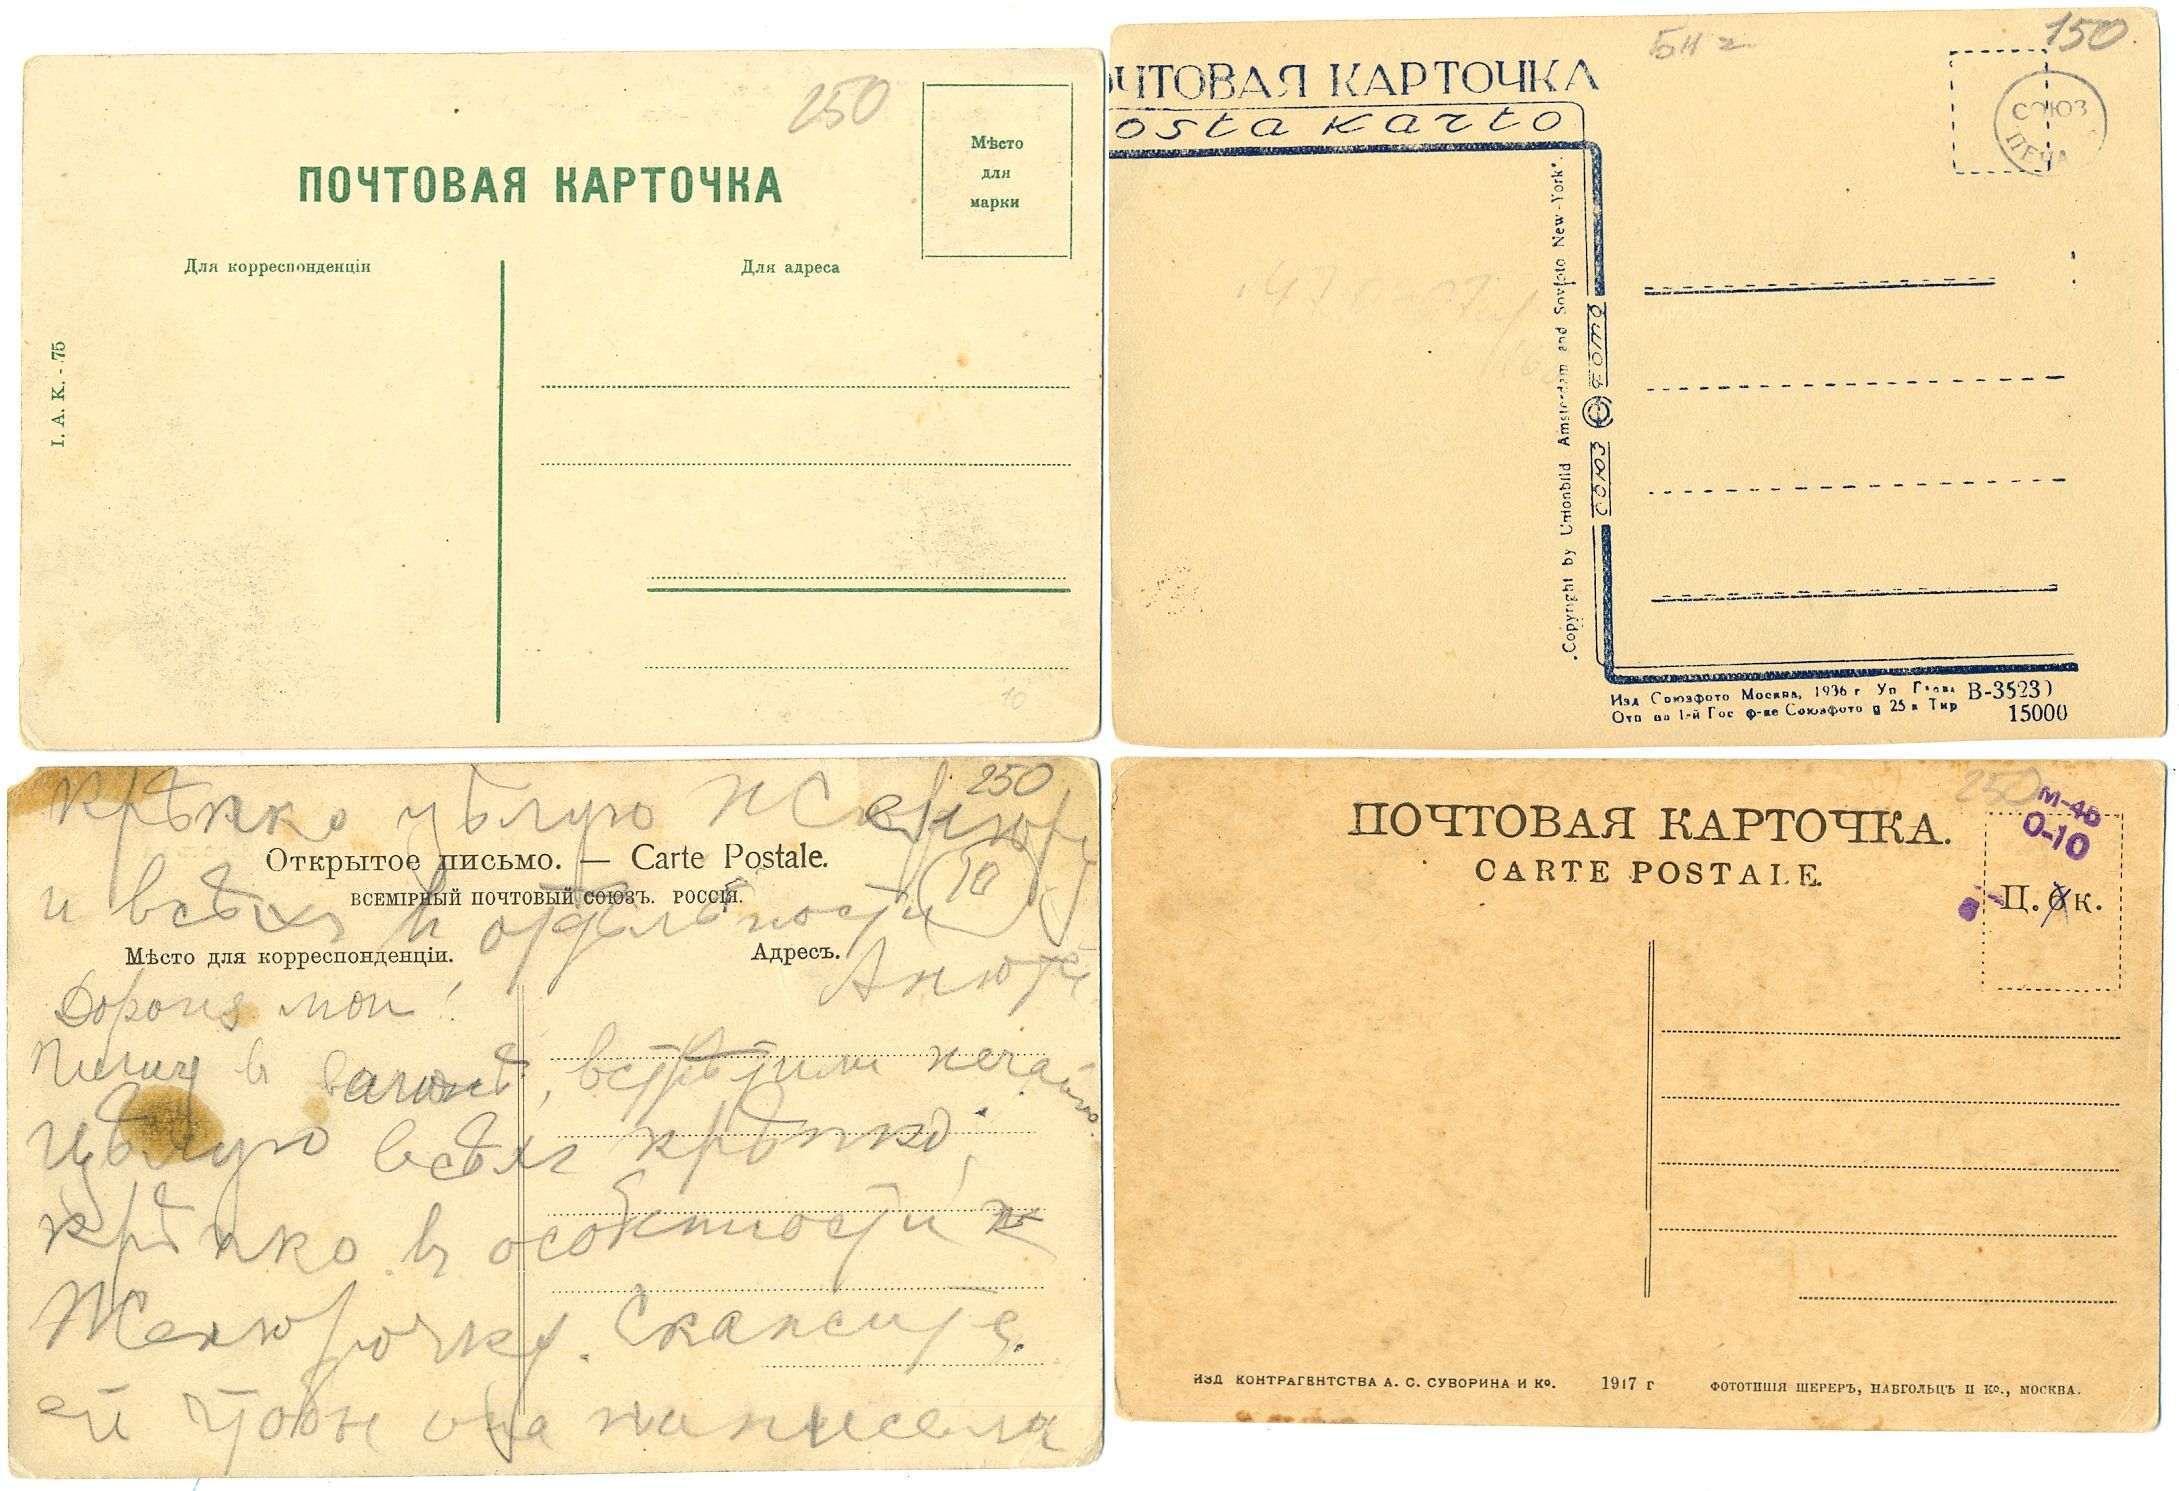 250
Мѣсто
для
марки
ПОЧТОВАЯ КАРТОЧКА
Для корреспонденціи
Для адреса
I. A. K. - 75
10
Бн г
150
ЧТОВАЯ КАРТОЧКА
osta karto
СОЮЗ
ПЕЧА
Copyright by Unionbild Amsterdam and Sovfoto New-York
СОЮЗ ФОТО
Изд Союзфото Москва, 1936 г Уп Глав В-3523)
Отп на 1-й Гос ф-ке Союзфото д 25 к Тир 15000
Крѣпко цѣлую
250
Открытое письмо. — Carte Postale.
ВСЕМІРНЫЙ ПОЧТОВЫЙ СОЮЗЪ. РОССІЯ.
10
и всѣхъ в отдѣльности
Мѣсто для корреспонденціи.
Адресъ.
Анюте
Дорогие мои!
Пишу в вагонѣ, встрѣтили нечаянно.
Цѣлую всѣхъ крѣпко,
крѣпко в особенности
Женюрочку. Скажите
ей чтобы она написала
250
М-4б
0-10
ПОЧТОВАЯ КАРТОЧКА.
CARTE POSTALE.
Ц. 6 к.
ИЗД КОНТРАГЕНТСТВА А. С. СУВОРИНА И Ко. 1917 г
ФОТОТИПІЯ ШЕРЕРЪ, НАБГОЛЬЦЪ И Ко., МОСКВА.